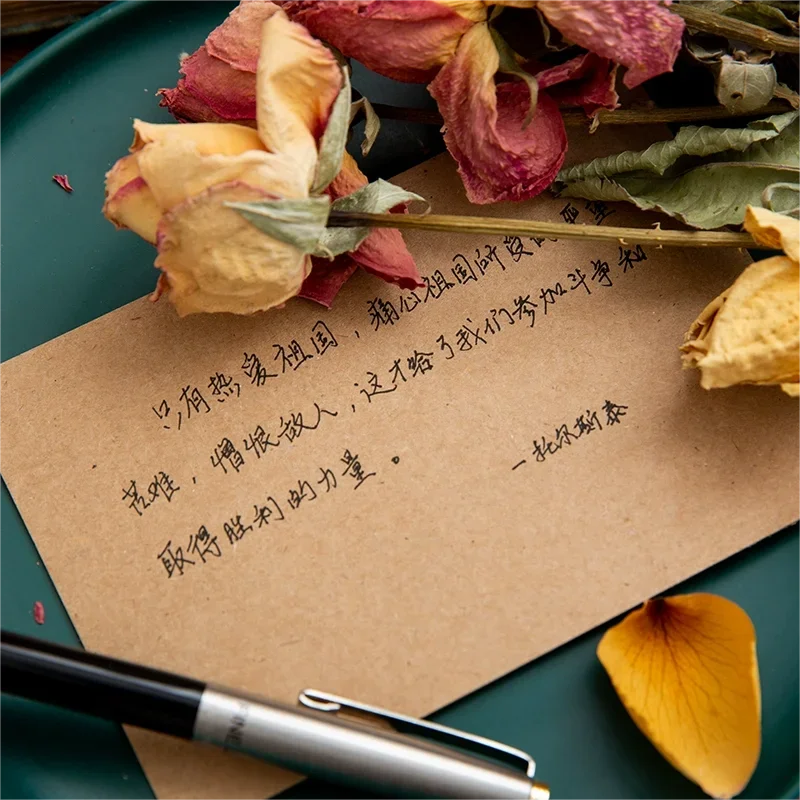 只有热爱祖国，痛心祖国所受的严重
苦难，憎恨敌人，这才给了我们参加斗争和
取得胜利的力量。
—托尔斯泰